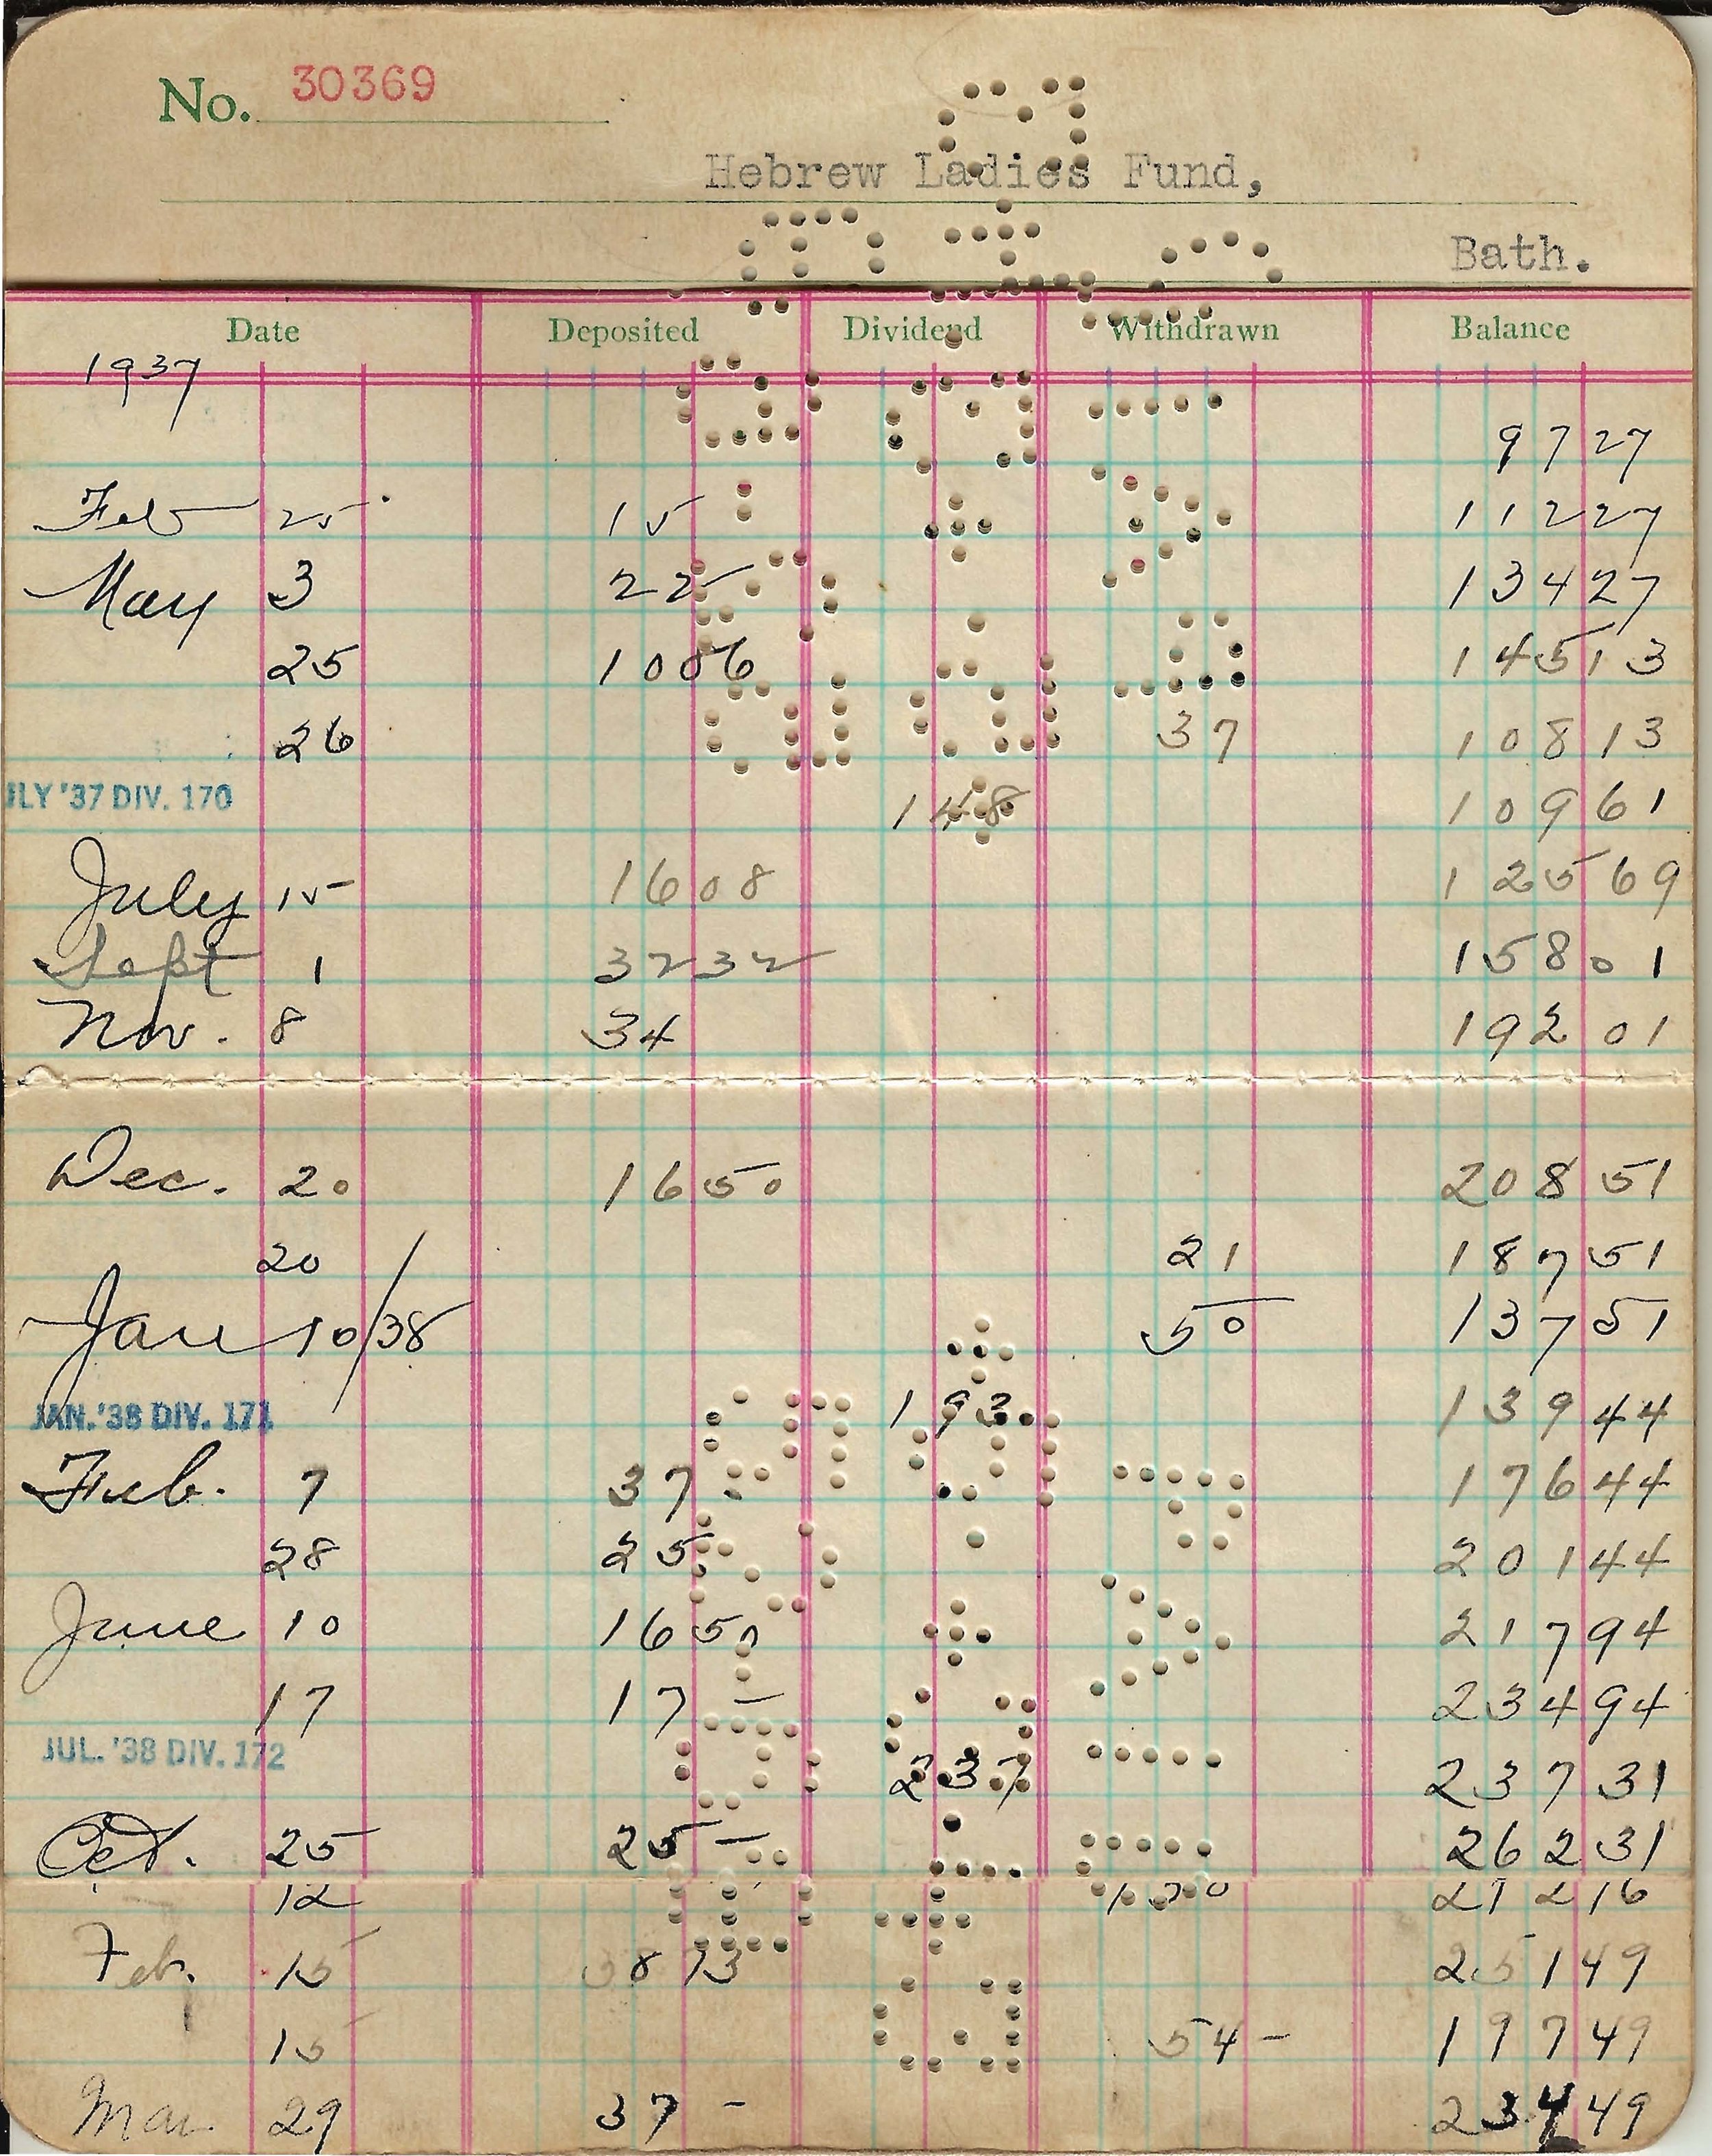 No. 30369
Hebrew Ladies Fund,
Bath.
Date Deposited Dividend Withdrawn Balance
1937
97 27
Feb 25 15 112 27
May 3 22 134 27
25 10 86 145 13
26 37 108 13
JLY '37 DIV. 170 1 48 109 61
July 15 16 08 125 69
Sept 1 32 32 158 01
Nov. 8 34 192 01
Dec. 20 16 50 208 51
20 21 187 51
Jan 10/38 50 137 51
JAN. '38 DIV. 171 1 93 139 44
Feb. 7 37 176 44
28 25 201 44
June 10 16 50 217 94
17 17 – 234 94
JUL. '38 DIV. 172 2 37 237 31
Oct. 25 25 – 262 31
12
Feb. 15 38 73 251 49
15 54 – 197 49
Mar 29 37 – 234 49